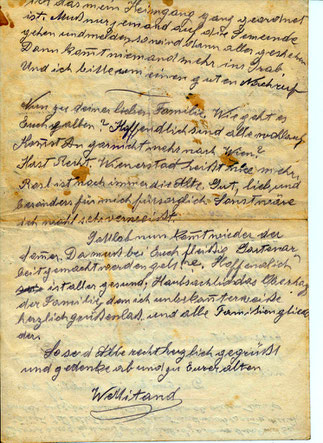 das mein Heimgang ganz geordnet
ist. Muß nur jemand auf die Gemeinde
gehen und melden so wird dann alles geschehen
Dann kommt niemand mehr ins Grab
Und ich bitte um einen guten Nachruf
Nun zu deiner lieben Familie. Wie geht es
Euch allen? Hoffendlich sind alle wollauf
Komst du garnicht mehr nach Wien?
Hast Recht. Wienerstad heißt nie mehr,
Karl ist noch immer die Alte Gut, lieb und
besonders für mich fürsorglich. Sonst wäre
ich nicht schon verreißt.
Gottlob nun kommt wieder der
Da muß bei Euch fleißig Gartenar
beit gemacht werden gelt? Hoffendlich
ist alles gesund, Hauptsächlich das Oberhaupt
der Familie, den ich unbekannterweiße
herzlich grüßen laß und alle Familienglie
der.
So seid Alle recht herzlich gegrüßt
und gedenke ab und zu Eurer alten